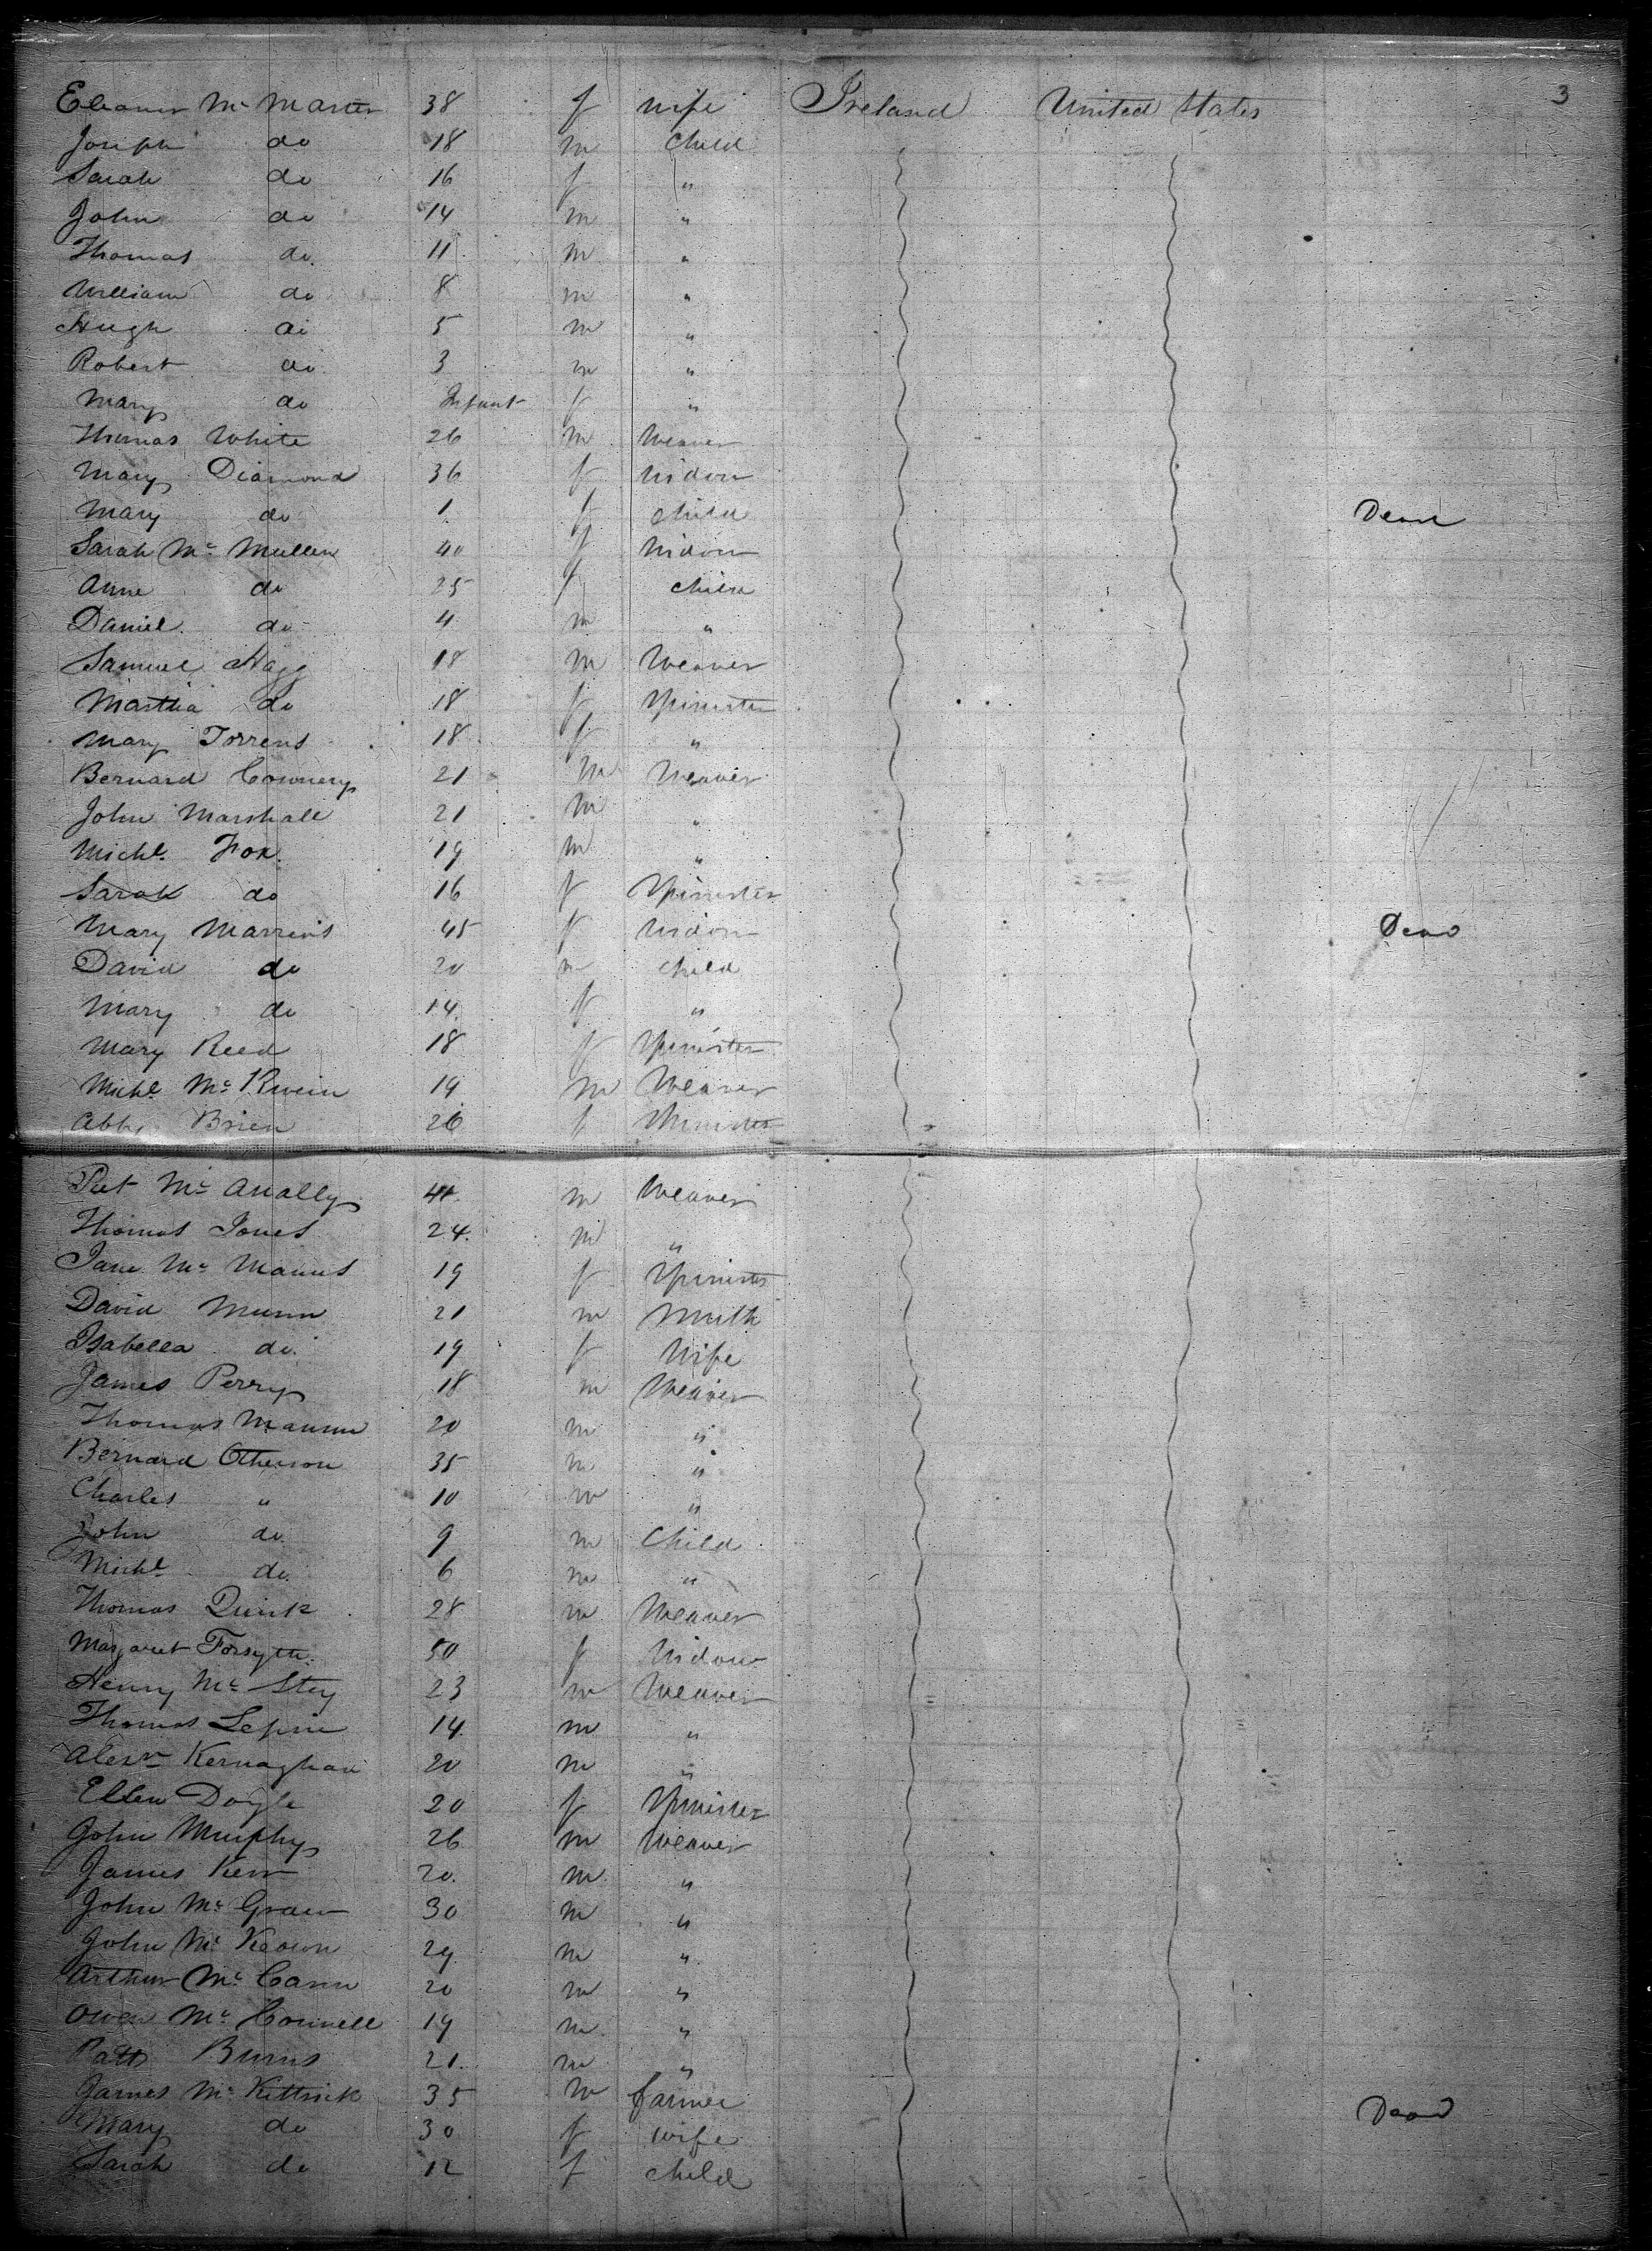 3
Eleanor Mc Master 38 f wife Ireland United States
Joseph do 18 m Child
Sarah do 16 f "
John do 14 m "
Thomas do 11 m "
William do 8 m "
Hugh do 5 m "
Robert do 3 m "
Mary do Infant f "
Thomas White 26 m Weaver
Mary Diamond 36 f Widow
Mary do 1 f child Dead
Sarah Mc Mullen 40 f Widow
Anne do 25 f child
Daniel do 4 m "
Samuel Hagg 18 m Weaver
Martha do 18 f Spinster
Mary Torrens 18 f "
Bernard Connery 21 m Weaver
John Marshall 21 m "
Michl. Fox 19 m "
Sarah do 16 f Spinster
Mary 45 f Widow Dead
David do 20 m child
Mary do 14 f "
Mary Reed 18 f Spinster
Michl. Mc 19 m Weaver
Abby Brien 26 f Spinster
Pat Mc Anally m Weaver
Thomas Jones 24 m "
Jane Mc Manus 19 f Spinster
David Munn 21 m Smith
Isabella do 19 f Wife
James Perry 18 m Weaver
Thomas 20 m "
Bernard Otherson 35 m "
Charles " 10 m "
John do 9 m Child
Michl. do 6 m "
Thomas Quirk 28 m Weaver
Margaret Forsyth 50 f Widow
Henry Mc Stey 23 m Weaver
Thomas 14 m "
Alexr Kernaghan 20 m "
Ellen Doyle 20 f Spinster
John Murphy 26 m Weaver
James Kerr 20 m "
John Mc Graw 30 m "
John Mc Keown 29 m "
Arthur Mc Cann 20 m "
Owen Mc Connell 19 m "
Patt Burns 21 m "
James Mc Kittrick 35 m farmer
Mary do 30 f wife Dead
Sarah do 12 f child